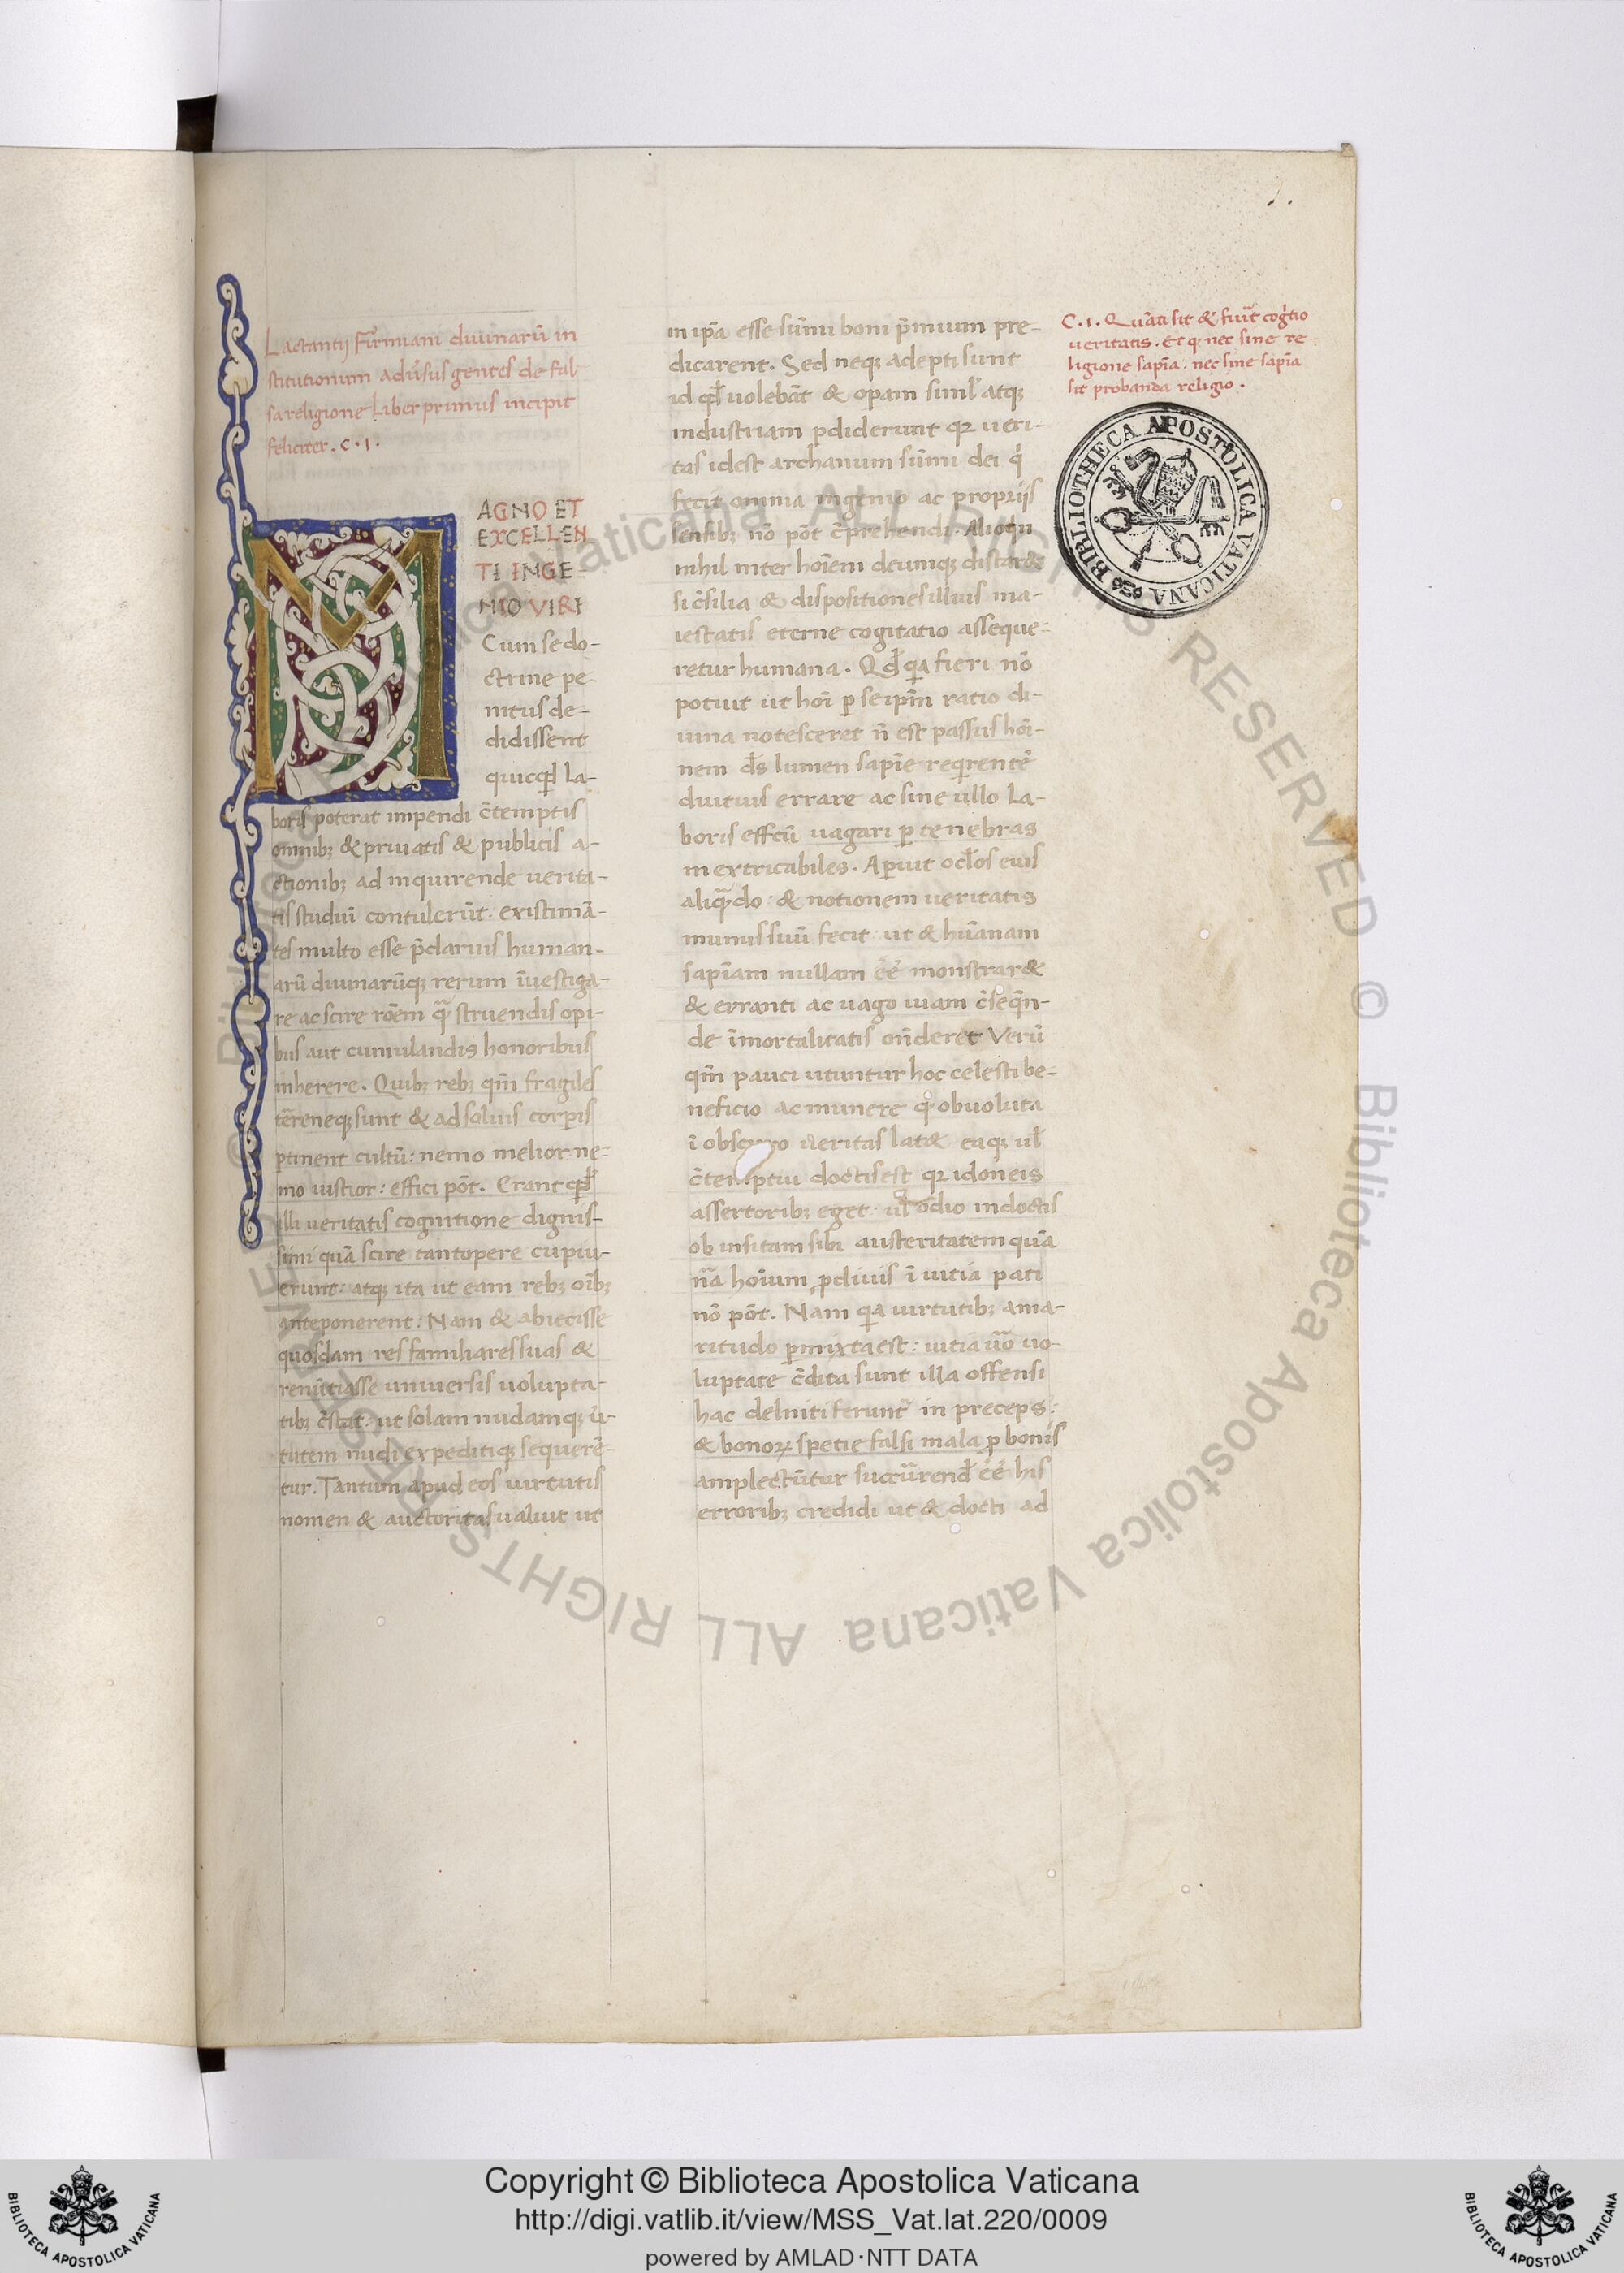 Lactantij Firmiani diuinarū in
stitutionum adūsus gentes de fal
sa religione Liber primus incipit
feliciter . C . I .
MAGNO ET
EXCELLEN
TI INGE-
NIO VIRI
Cum se do-
ctrine pe-
nitus de-
didissent
quicqd la-
boris poterat impendi c̄temptis
omnibꝫ & priuatis & publicis a-
ctionibꝫ ad inquirende uerita-
tis studiū contulerūt. existimā-
tes multo esse p̄clarius human-
arū diuinarūqꝫ rerum īuestiga-
re ac scire rōem qͣ struendis opi-
bus aut cumulandis honoribus
inherere. Quibꝫ rebꝫ qm̄ fragiles
tērenęqꝫ sunt & ad solius corꝑis
ꝑtinent cultū: nemo melior: ne-
mo iustior: effici pōt. Erant qd̄
illi ueritatis cognitione dignis-
simi quā scire tantopere cupiu-
erunt: atqꝫ ita ut eam rebꝫ oībꝫ
anteponerent: Nam & abiecisse
quosdam res familiares suas &
renūtiasse uniuersis uolupta-
tibꝫ c̄stat: ut solam nudamqꝫ ū-
tutem nudi expeditiqꝫ sequerē-
tur. Tantum apud eos uirtutis
nomen & auctoritas ualuit ut
in ip̄a esse sūmi boni p̄mium pre-
dicarent. Sed neqꝫ adepti sunt
id qd̄ uolebāt & oꝑam siml̄ atqꝫ
industriam ꝑdiderunt qꝛ ueri-
tas idest archanum sūmi dei q̇
fecit omnia ingenio ac propriis
sensibꝫ nō pōt c̄prehendi. Alioqu
nihil inter hoīem deumqꝫ distar&
si c̄silia & dispositiones illius ma-
iestatis eterne cogitatio asseque-
retur humana. Qd̄ qꝛa fieri nō
potuit ut hoī ꝑ seip̄m ratio di-
uina notesceret n̄ est passus hoī-
nem d̄s lumen sapīe reqͥrentē
diutius errare ac sine ullo la-
boris effc̄u uagari ꝑ tenebras
inextricabiles. Aꝑuit ocl̄os eius
aliqͣdo: & notionem ueritatis
munus suū fecit ut & hūanam
sapīam nullam ēē monstrar&
& erranti ac uago uiam c̄seqn̄-
de īmortalitatis on̄deret Verū
qm̄ pauci utuntur hoc celesti be-
neficio ac munere qꝛ obuoluta
ī obscuro ueritas lat& eaqꝫ ul̄
c̄temptui doctis est qꝛ idoneis
assertoribꝫ eget. ul̄ odio indoctis
ob insitam sibi austeritatem quā
nͣa hoīum ꝓcliuis ī uitia pati
nō pōt. Nam qꝛa uirtutibꝫ ama-
ritudo ꝑmixta est: uitia ūo uo-
luptate c̄dita sunt illa offensi
hac deliniti feruntͬ in preceps:
& bonoꝝ spetie falsi mala ꝓ bonis
amplectūtur succūrend̄ ēē his
erroribꝫ credidi ut & docti ad
C . I . Quāti sit & fuīt coḡtio
ueritatis. Et ꝙ nec sine re-
ligione sapīa: nec sine sapīa
sit probanda religio.
BIBLIOTHECA APOSTOLICA VATICANA
© Biblioteca Apostolica Vaticana ALL RIGHTS RESERVED © Biblioteca Apostolica Vaticana ALL RIGHTS RESERVED
Copyright © Biblioteca Apostolica Vaticana
http://digi.vatlib.it/view/MSS_Vat.lat.220/0009
powered by AMLAD·NTT DATA
BIBLIOTECA APOSTOLICA VATICANA
BIBLIOTECA APOSTOLICA VATICANA